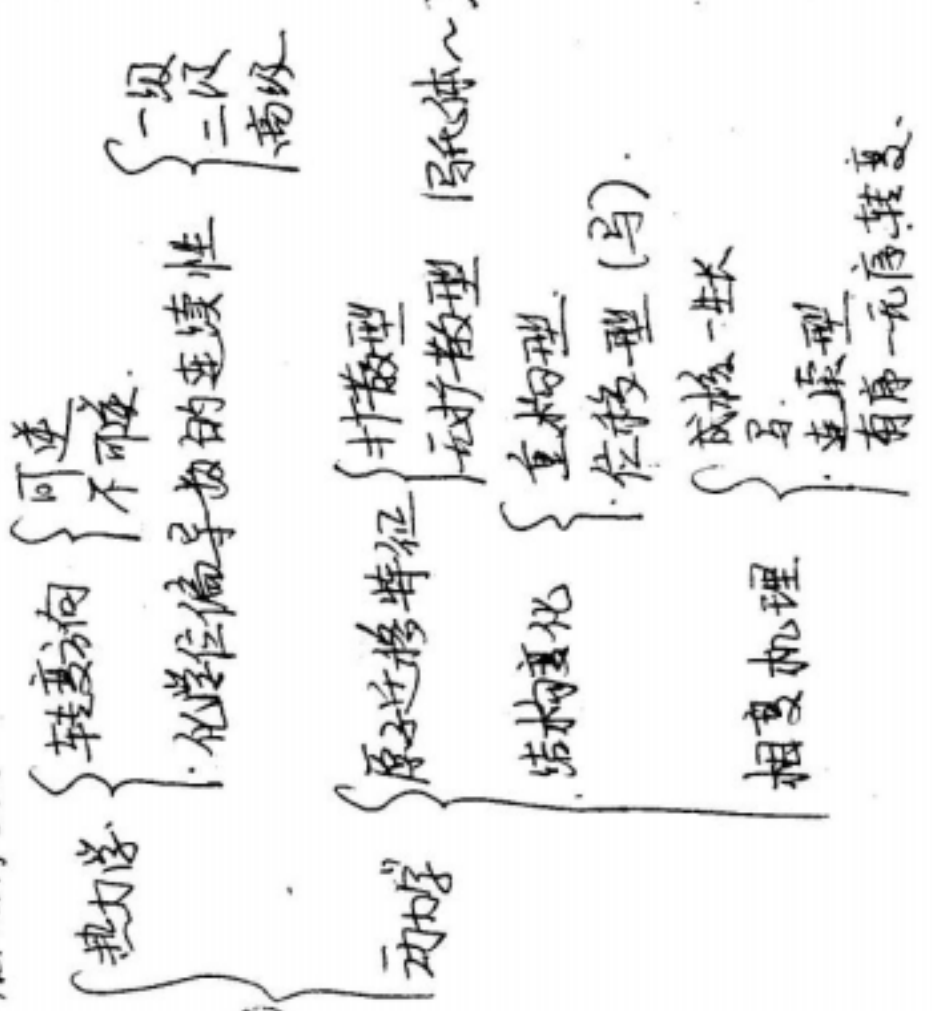 热力学
转变方向
可逆
不可逆.
化学位偏导数的连续性
一级
二级
高级
动力学
原子迁移特征
扩散型
无扩散型
马氏体~
结构变化
重构型.
位移型 (马).
相变机理
成核-生长
马.
连续型
有序-无序转变.